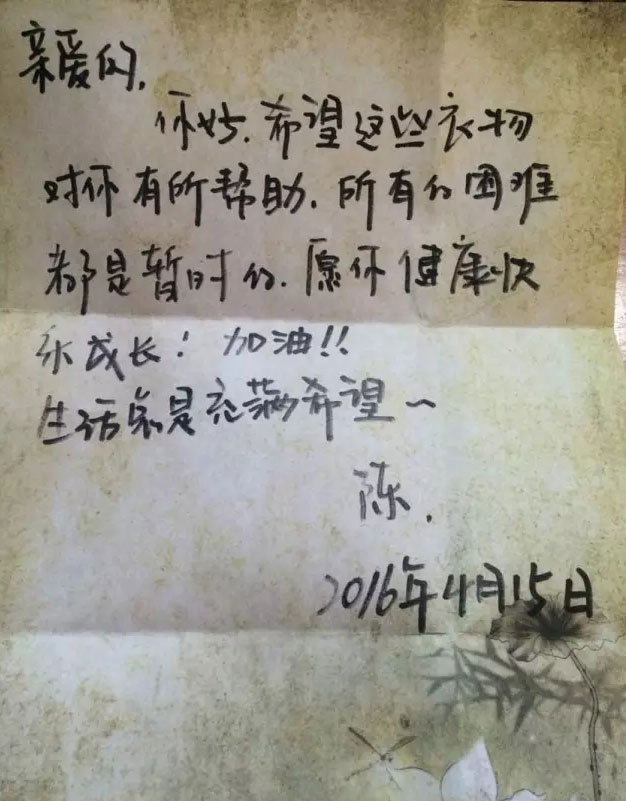 亲爱的,
你好.希望这些衣物
对你有所帮助.所有的困难
都是暂时的.愿你健康快
乐成长!加油!!
生活总是充满希望~
陈.
2016年4月15日